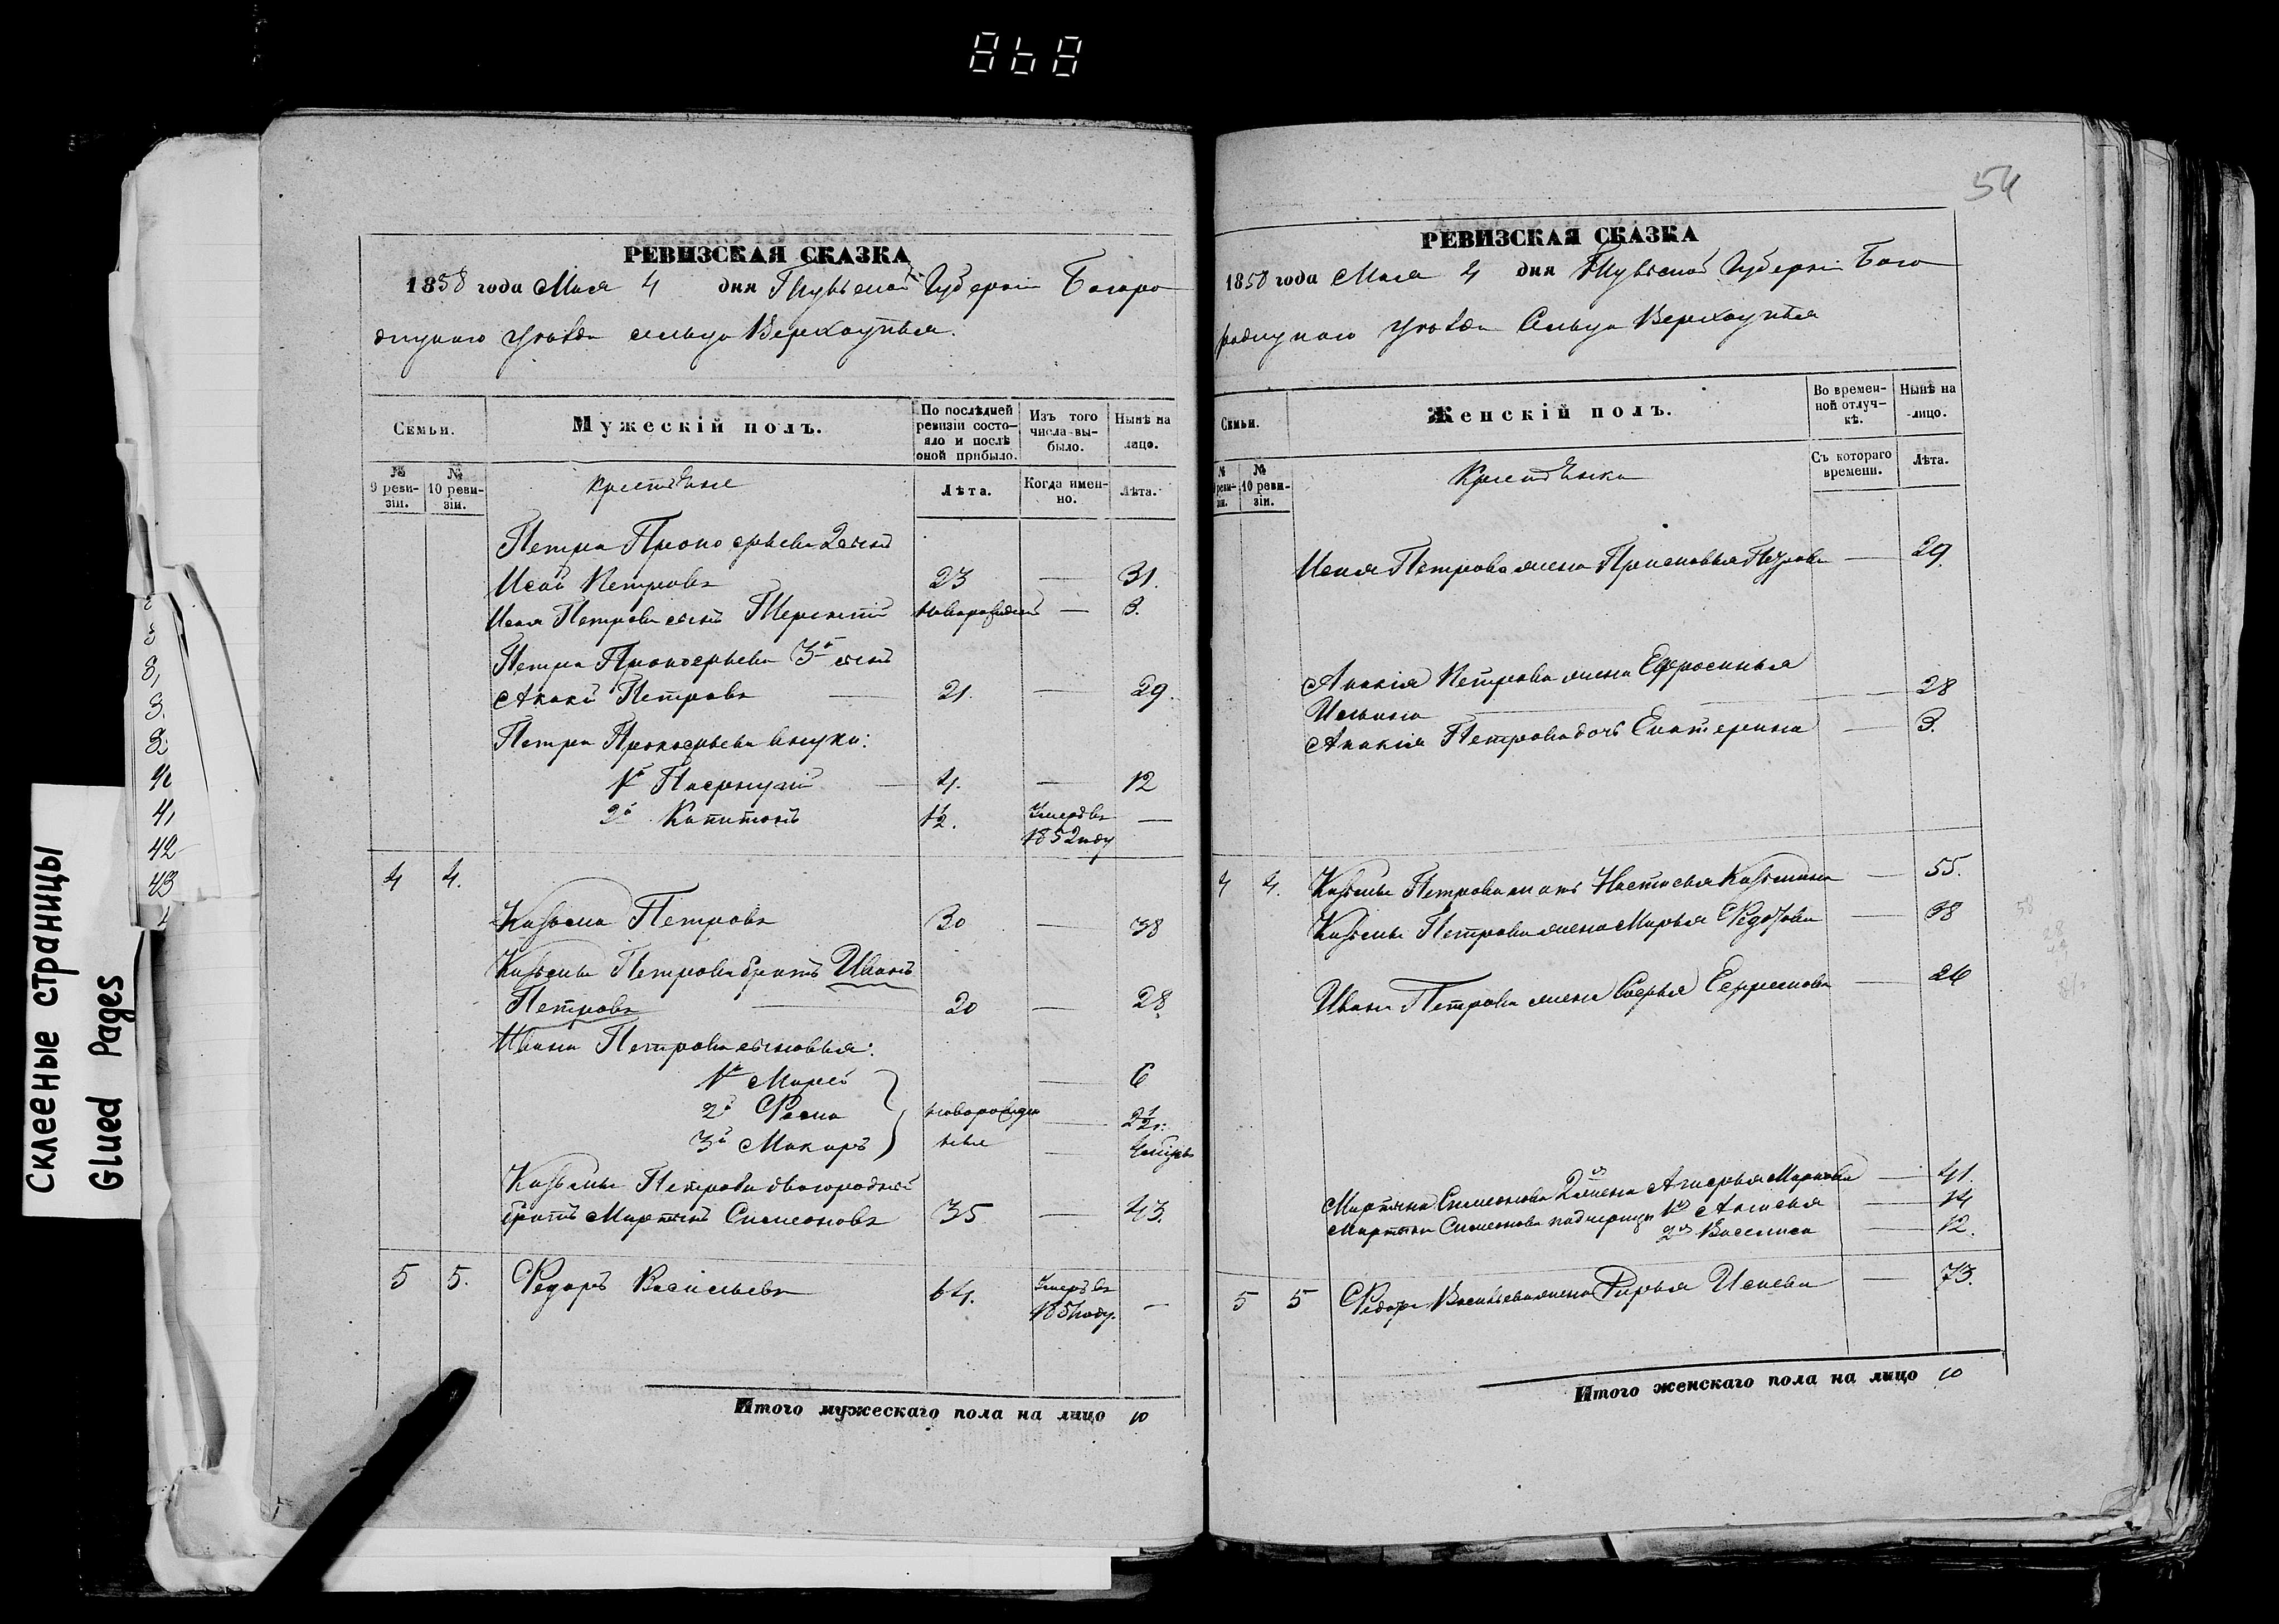 868
Склееные страницы
Glued Pages
3,
3.
40
41,
42
43
РЕВИЗСКАЯ СКАЗКА
1858 года Мая 4 дня Тульской Губерніи Богоро
дицкаго уѣзда сельца Верхоупья.
Семьи.
Мужескій полъ.
По послѣдней ревизіи состо-
яло и послѣ оной прибыло.
Изъ того числа вы-
было.
Нынѣ на лицо.
№ 9 реви-
зіи.
№ 10 реви-
зіи.
Крестьяне
Лѣта.
Когда имен-
но.
Лѣта.
Петра Прокофьева 2 сынъ
Исай Петровъ 23 — 31.
Исая Петрова сынъ Терентій новорожденный — 3.
Петра Прокофьева 3й сынъ
Акакій Петровъ — 21. — 29.
Петра Прокофьева внуки:
1й Пафнутій — 4. — 12
2й Капитонъ 1/2. Умеръ въ —
1852 году
4 4.
Казьма Петровъ 30 — 38
Казьмы Петрова братъ Иванъ
Петровъ — 20 — 28
Ивана Петрова сыновья:
1й Мирей — 6
2й Фома новорожден — 2 1/2 г:
3й Макаръ ные —
Казьмы Петрова двоюродный
братъ Мартынъ Симеоновъ 35 — 43.
5 5. Федоръ Васильевъ 64. Умеръ въ —
1851 году.
Итого мужескаго пола на лицо 10
54
РЕВИЗСКАЯ СКАЗКА
1858 года Мая 4 дня Тульской Губерніи Бого
родицкаго уѣзда Сельца Верхоупья
Семьи.
Женскій полъ.
Во времен-
ной отлуч-
кѣ.
Нынѣ на лицо.
№ 9 реви-
зіи.
№ 10 реви-
зіи.
Крестьянки
Съ котораго времени.
Лѣта.
Исая Петрова жена Прасковья Петрова — 29.
Акакія Петрова жена Ефросинья
Ильина — — 28
Акакія Петрова дочь Екатерина — 3.
4 4. Казьмы Петрова мать Настасья Казьмина — 55.
Казьмы Петрова жена Марья Федотова — 38
Ивана Петрова жена Софья Ефремова — 26
Мартына Симеонова 2я жена Агафья Маркова — 41.
Мартына Симеонова падчерицы 1я Аксинья — 14
2я Василиса — 12.
5 5 Федора Васильева жена Дарья Исаева — 73.
Итого женскаго пола на лицо 10